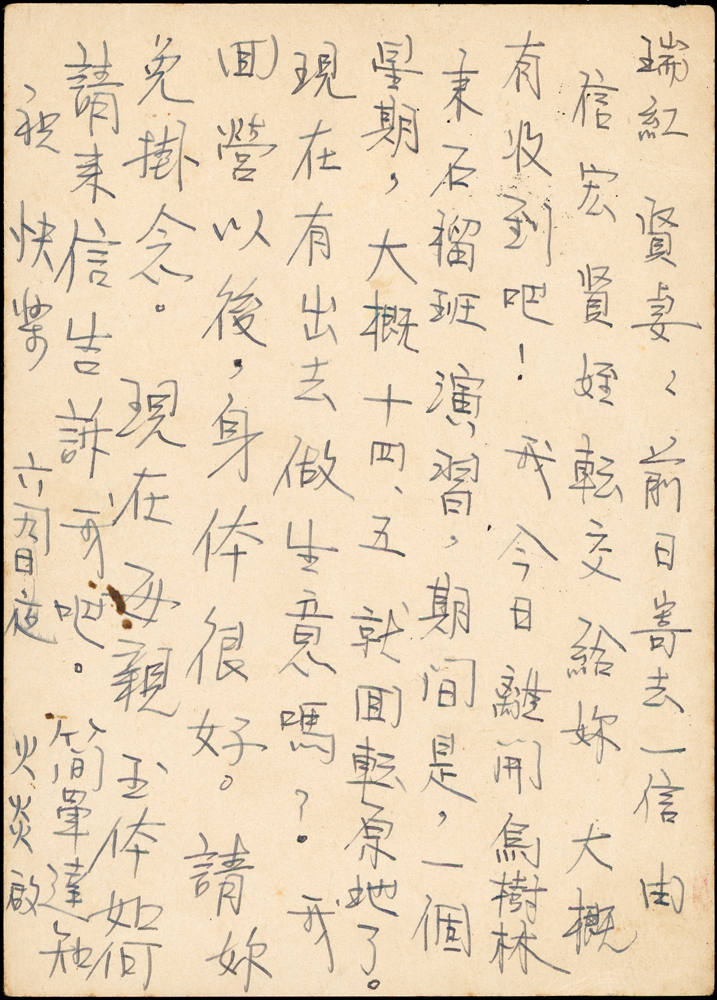 瑞紅 賢妻:前日寄去一信由
信宏賢姪転交給妳 大概
有收到吧! 我今日離開烏樹林
来石榴班演習,期間是,一個
星期,大概十四、五就囬転原地了。
現在有出去做生意嗎?.我
囬營以後,身体很好。請妳
免掛念。 現在母親玉体如何
請来信告訴我吧。 簡單達知
祝 快樂 六月九日夜 火炎啟